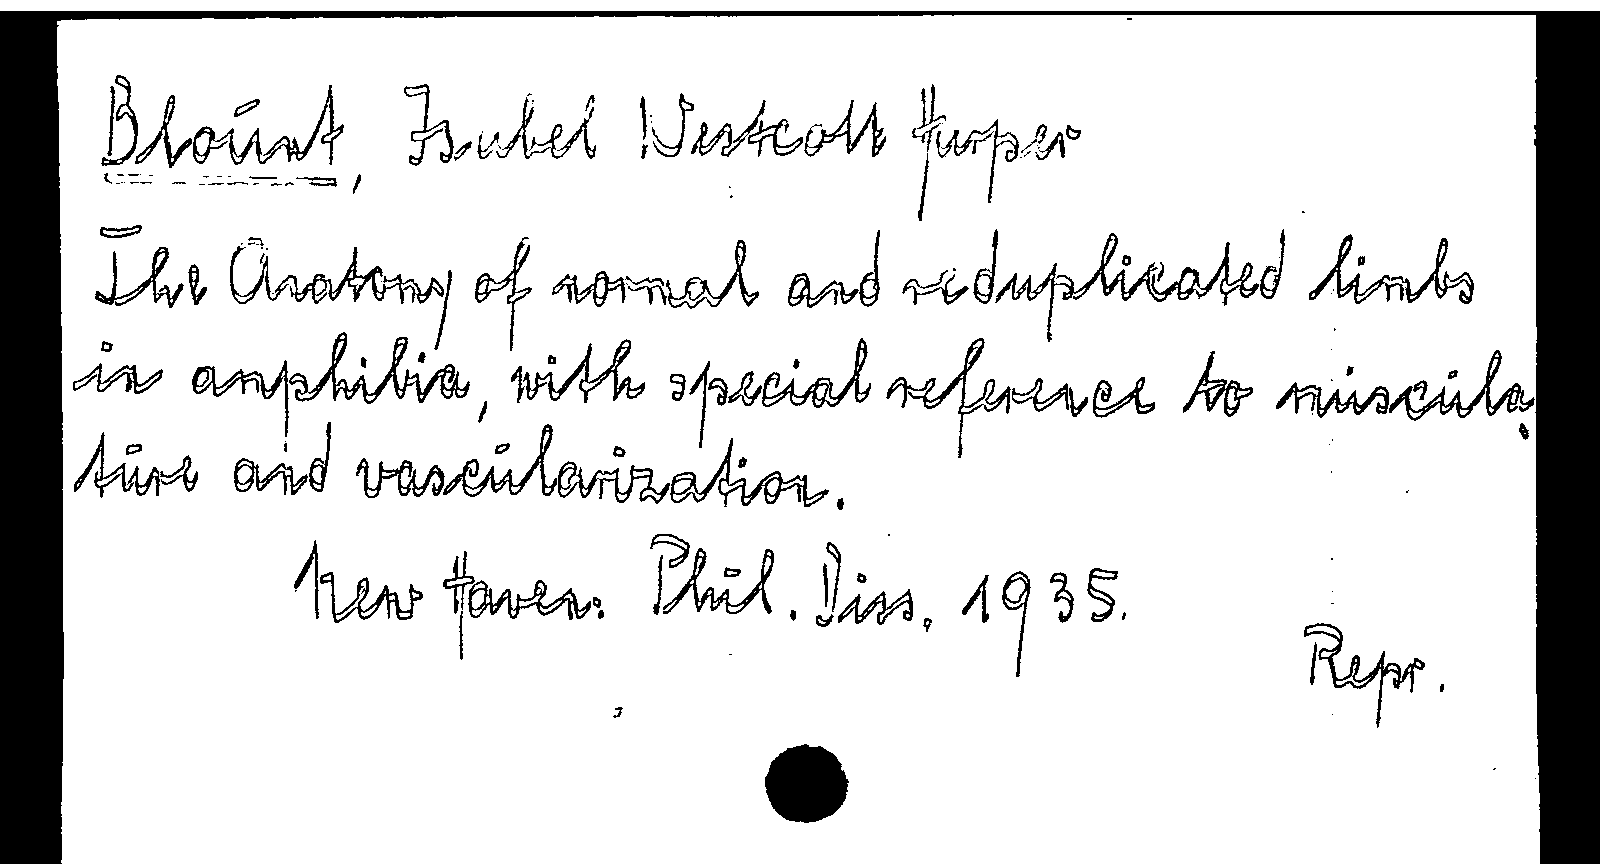 Blount, Isabel Westcott Harper
The Anatomy of normal and reduplicated limbs
in amphibia, with special reference to muscula-
ture and vascularization.
New Haven: Phil. Diss. 1935.
Repr.